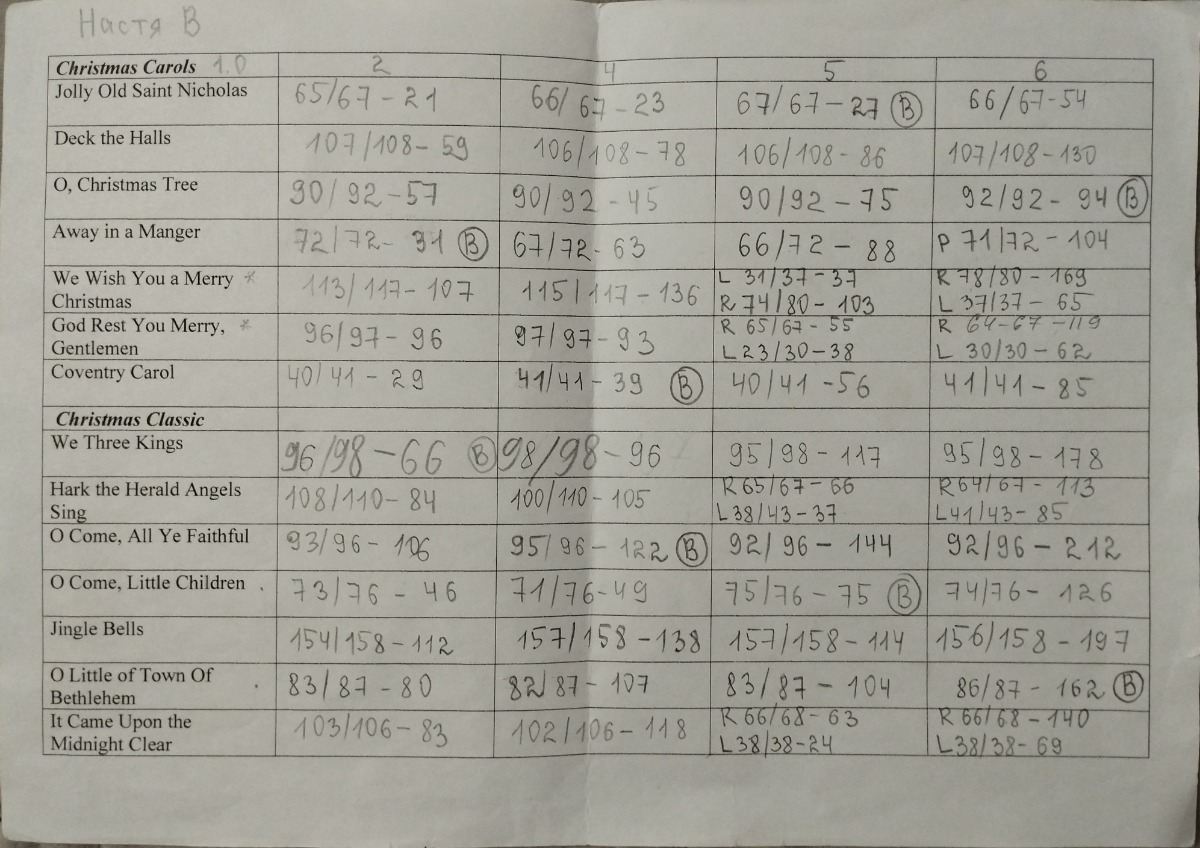 Настя В
Christmas Carols 1.0 2 4 5 6
Jolly Old Saint Nicholas 65/67 - 21 66/67 - 23 67/67 - 27 В 66/67 - 54
Deck the Halls 107/108 - 59 106/108 - 78 106/108 - 86 107/108 - 130
O, Christmas Tree 90/92 - 57 90/92 - 45 90/92 - 75 92/92 - 94 В
Away in a Manger 72/72 - 31 В 67/72 - 63 66/72 - 88 P 71/72 - 104
We Wish You a Merry * 113/117 - 107 115/117 - 136 L 31/37 - 37 R 78/80 - 169
Christmas R 74/80 - 103 L 37/37 - 65
God Rest You Merry, * 96/97 - 96 97/97 - 93 R 65/67 - 55 R 64-67 - 119
Gentlemen L 23/30 - 38 L 30/30 - 62
Coventry Carol 40/41 - 29 41/41 - 39 В 40/41 - 56 41/41 - 85
Christmas Classic
We Three Kings 96/98 - 66 В 98/98 - 96 95/98 - 117 95/98 - 178
Hark the Herald Angels 108/110 - 84 100/110 - 105 R 65/67 - 66 R 64/67 - 113
Sing L 38/43 - 37 L 41/43 - 85
O Come, All Ye Faithful 93/96 - 106 95/96 - 122 В 92/96 - 144 92/96 - 212
O Come, Little Children . 73/76 - 46 71/76 - 49 75/76 - 75 В 74/76 - 126
Jingle Bells 154/158 - 112 157/158 - 138 157/158 - 114 156/158 - 197
O Little of Town Of . 83/87 - 80 82/87 - 107 83/87 - 104 86/87 - 162 В
Bethlehem
It Came Upon the 103/106 - 83 102/106 - 118 R 66/68 - 63 R 66/68 - 140
Midnight Clear L 38/38 - 24 L 38/38 - 69